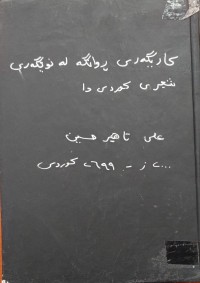 کاریگەری ڕوانگە لە نوێگەری
شعری کوردی دا
علی تاهیر حسین
٢٠٠٠ ز - ٢٦٩٩ کوردی